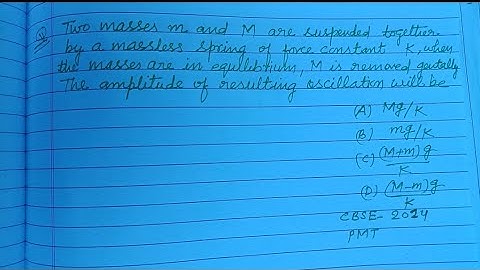 Q) Two masses m and M are suspended together
by a massless spring of force constant K, when
the masses are in equilibrium, M is removed gentally
The amplitude of resulting oscillation will be
(A) Mg/K
(B) mg/K
(C) (M+m)g/K
(D) (M-m)g/K
CBSE- 2024
PMT